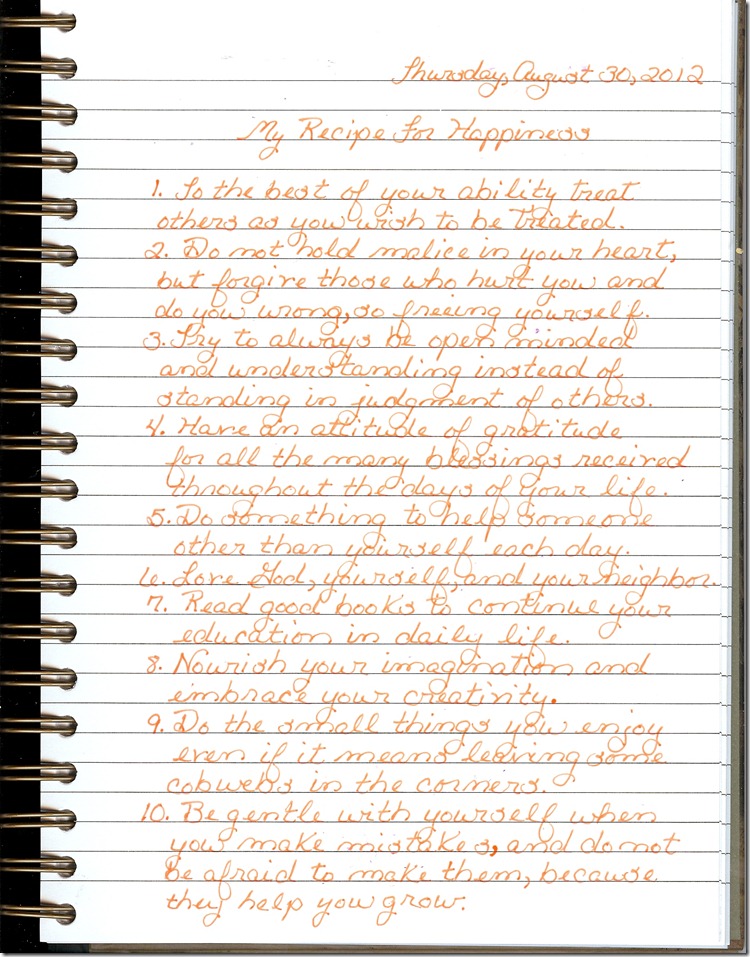 Thursday, August 30, 2012
My Recipe For Happiness
1. To the best of your ability treat
others as you wish to be treated.
2. Do not hold malice in your heart,
but forgive those who hurt you and
do you wrong, so freeing yourself.
3. Try to always be open minded
and understanding instead of
standing in judgment of others.
4. Have an attitude of gratitude
for all the many blessings received
throughout the days of your life.
5. Do something to help someone
other than yourself each day.
6. Love God, yourself, and your neighbor.
7. Read good books to continue your
education in daily life.
8. Nourish your imagination and
embrace your creativity.
9. Do the small things you enjoy
even if it means leaving some
cobwebs in the corners.
10. Be gentle with yourself when
you make mistakes, and do not
be afraid to make them, because
they help you grow.